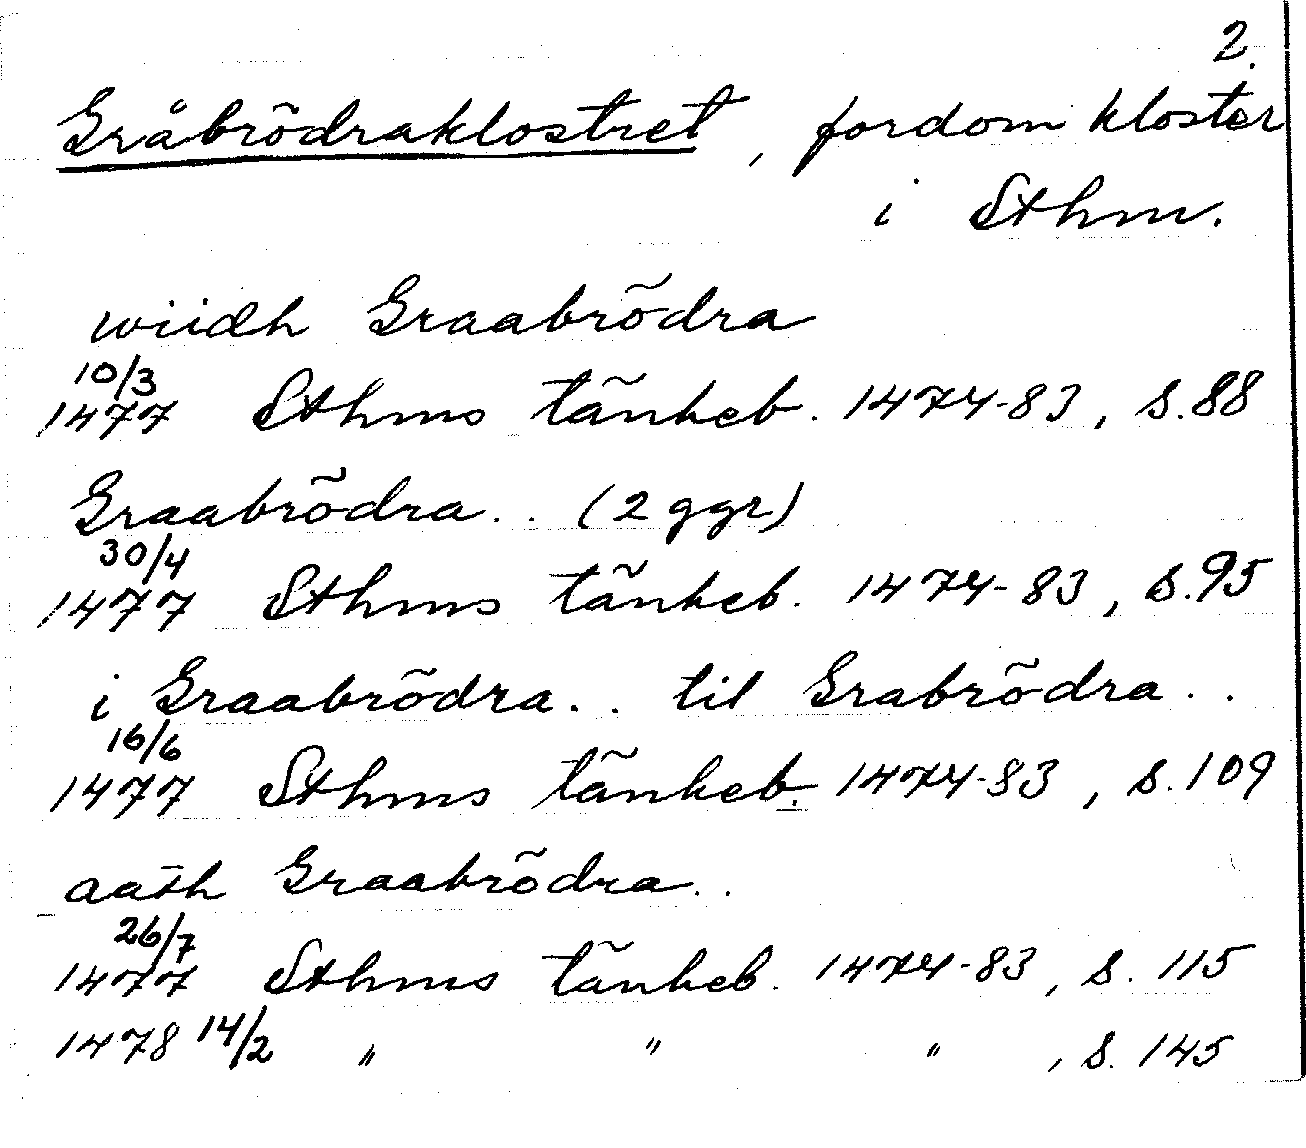 2.
Gråbrödraklostret, fordom kloster
i Sthm.
wiidh Graabrödra
10/3
1477 Sthms tänkeb. 1474-83, s. 88
Graabrödra.. (2 ggr)
30/4
1477 Sthms tänkeb. 1474-83, s. 95
i Graabrödra.. til Grabrödra..
16/6
1477 Sthms tänkeb. 1474-83, s. 109
aath Graabrödra..
26/7
1477 Sthms tänkeb. 1474-83, s. 115
1478 14/2 " " " , s. 145